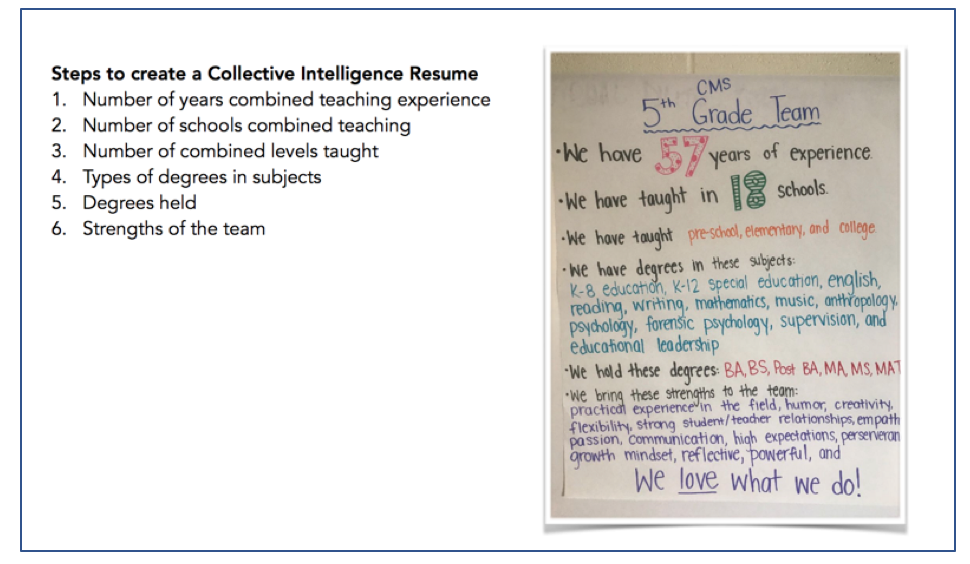 Steps to create a Collective Intelligence Resume
1. Number of years combined teaching experience
2. Number of schools combined teaching
3. Number of combined levels taught
4. Types of degrees in subjects
5. Degrees held
6. Strengths of the team
CMS
5th Grade Team
•We have 57 years of experience.
•We have taught in 18 schools.
•We have taught pre-school, elementary, and college.
•We have degrees in these subjects:
K-8 education, K-12 special education, english,
reading, writing, mathematics, music, anthropology,
psychology, forensic psychology, supervision, and
educational leadership
•We hold these degrees: BA, BS, Post BA, MA, MS, MAT
•We bring these strengths to the team:
practical experience in the field, humor, creativity,
flexibility, strong student/teacher relationships, empath
passion, communication, high expectations, perserveran
growth mindset, reflective, powerful, and
We love what we do!